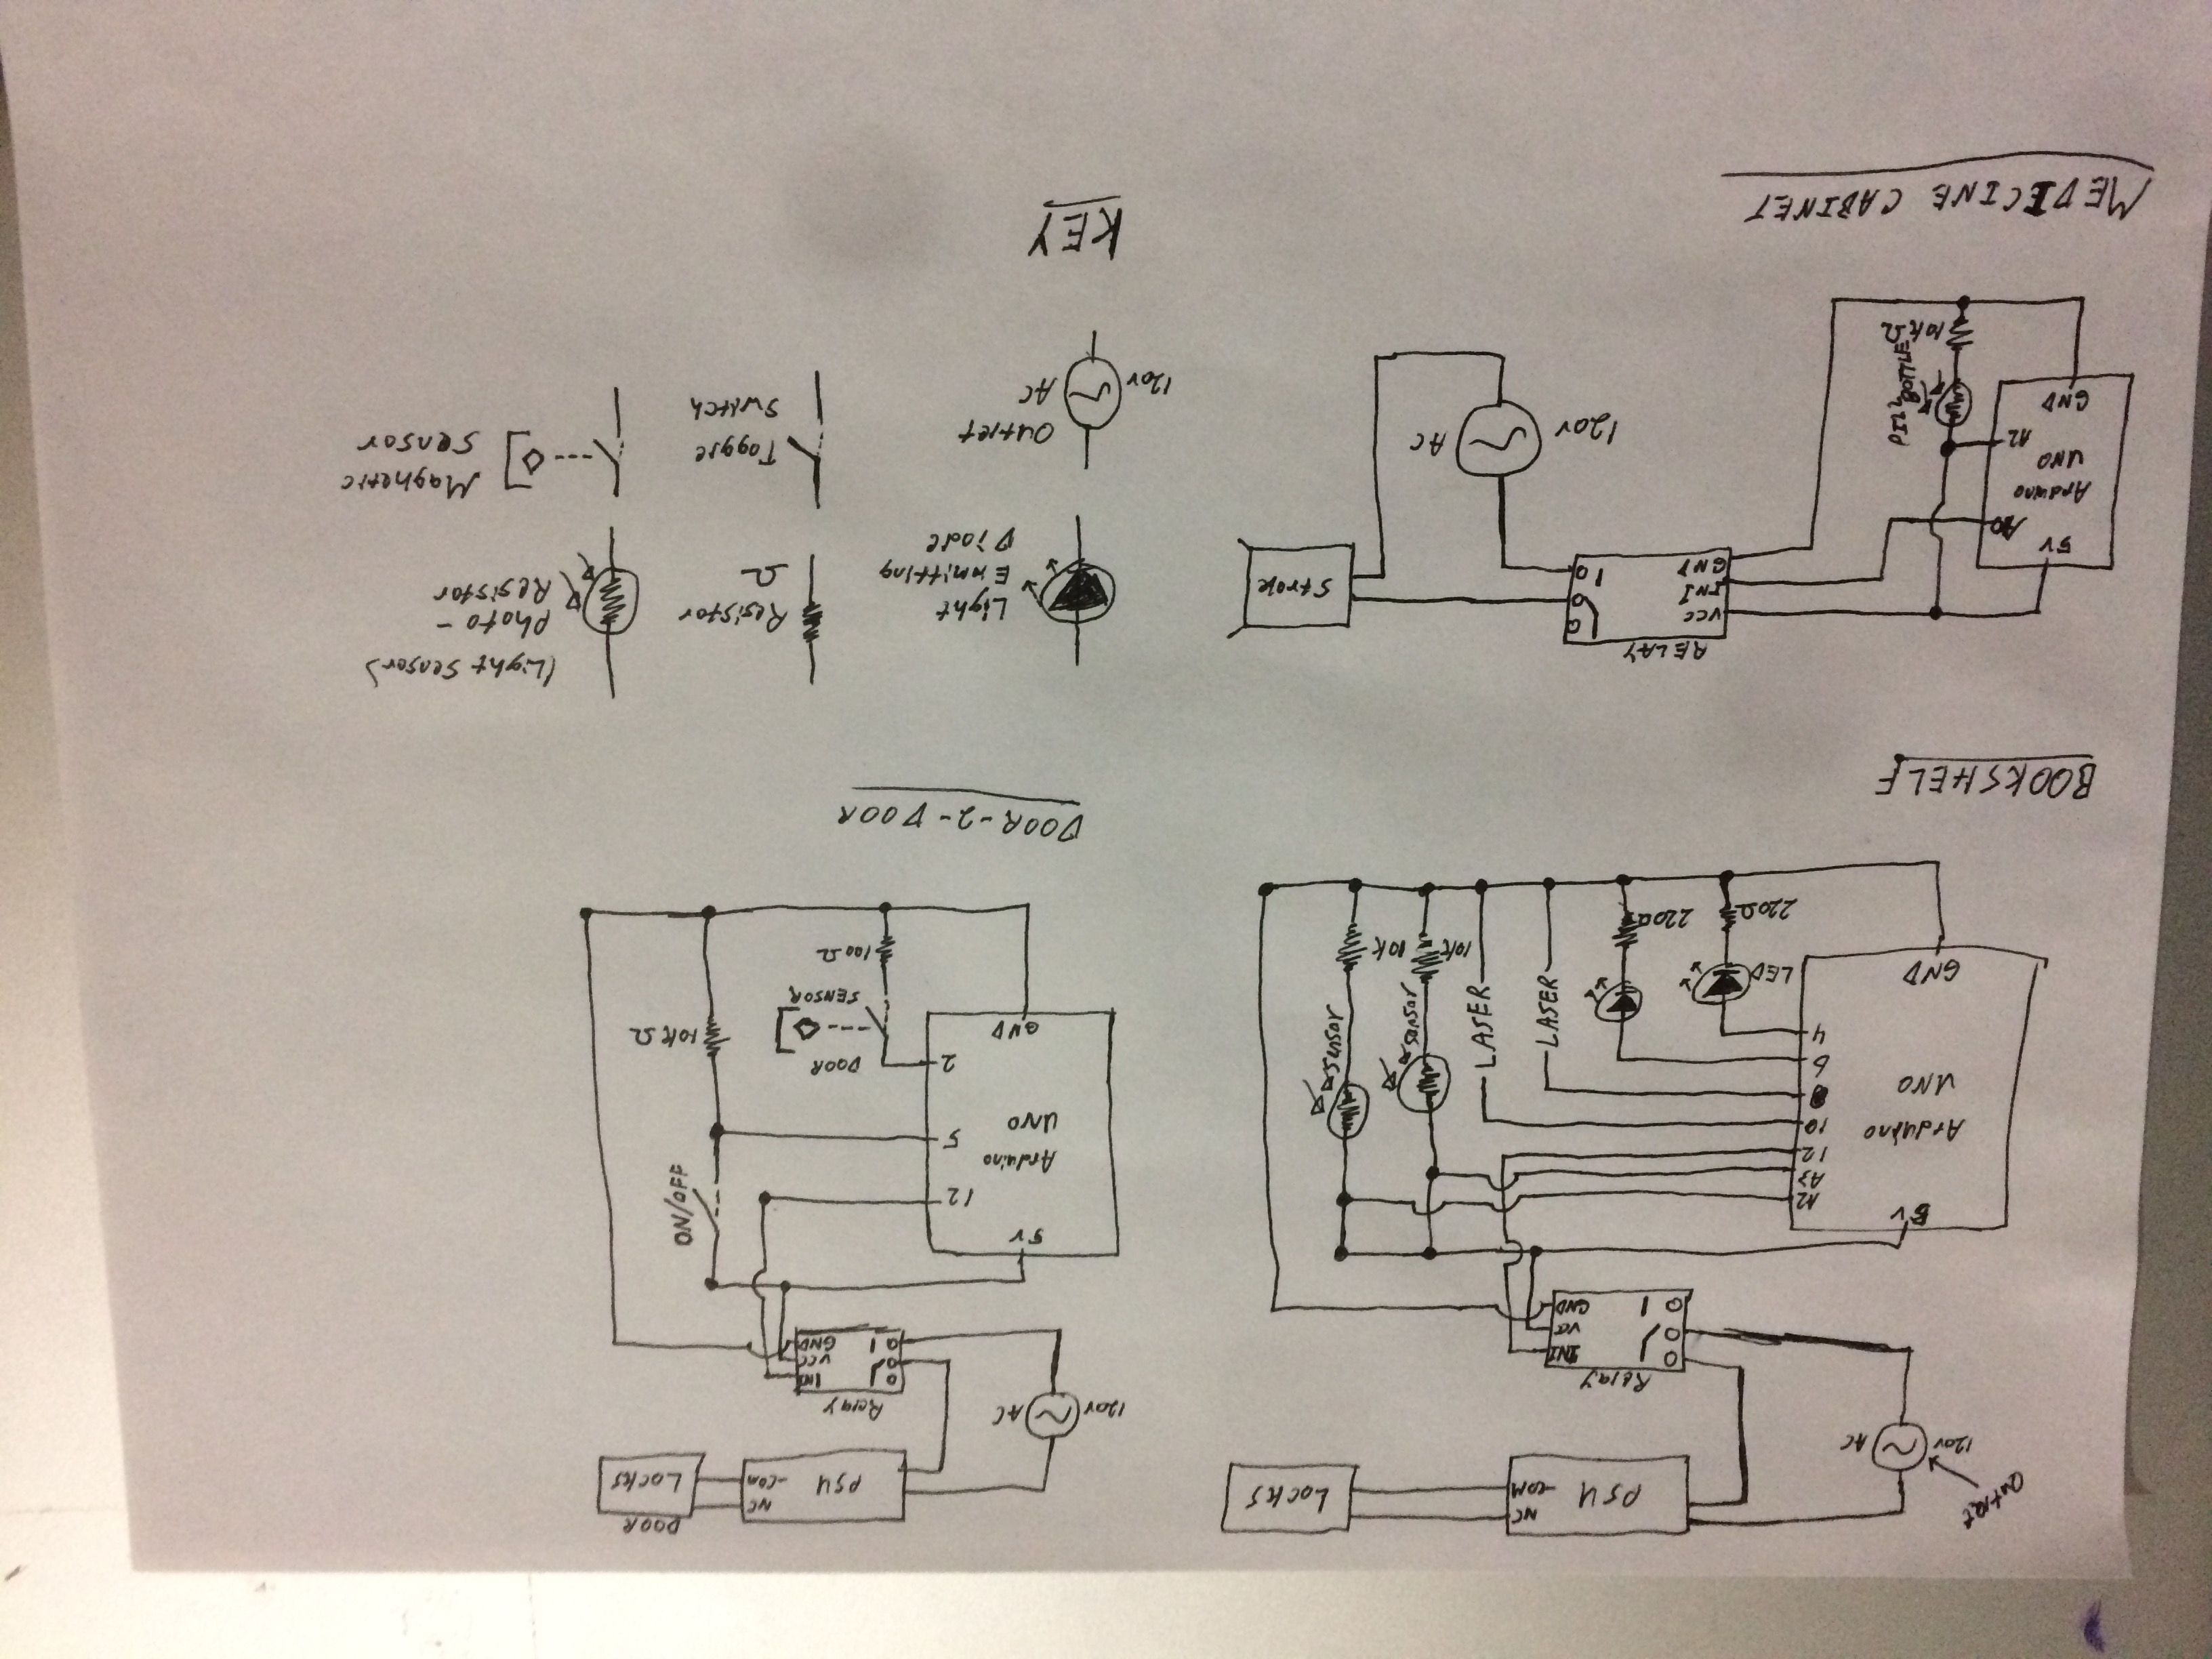 Outlet
120v AC
PSU
NC
-COM
LOCKS
Relay
IN1
VCC
GND
5V
A2
A3
12
10
6
4
Arduino
UNO
GND
LED
220Ω
220Ω
LASER
LASER
sensor
sensor
10K
10K
BOOKSHELF
PSU
NC
-COM
DOOR
LOCKS
120v AC
Relay
IN1
VCC
GND
5V
12
5
2
Arduino
UNO
GND
ON/OFF
DOOR
SENSOR
100Ω
10KΩ
DOOR-2-DOOR
RELAY
VCC
IN1
GND
5V
A0
Arduino
UNO
A2
GND
PILL BOTTLE
10KΩ
Strobe
120v AC
MEDICINE CABINET
Light
Emmitting
Diode
Resistor
Ω
(Light Sensor)
Photo-
Resistor
120v
Outlet
AC
Toggle
Switch
Magnetic
Sensor
KEY